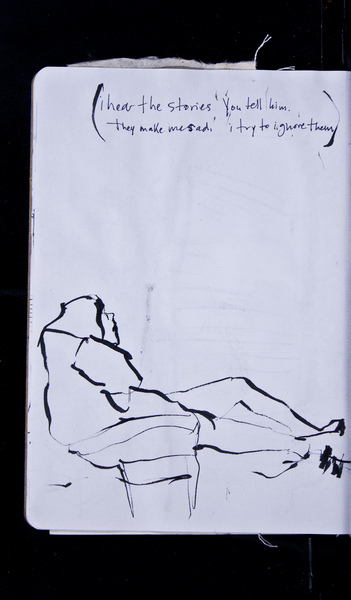 (i hear the stories you tell him.
they make me sad. i try to ignore them)